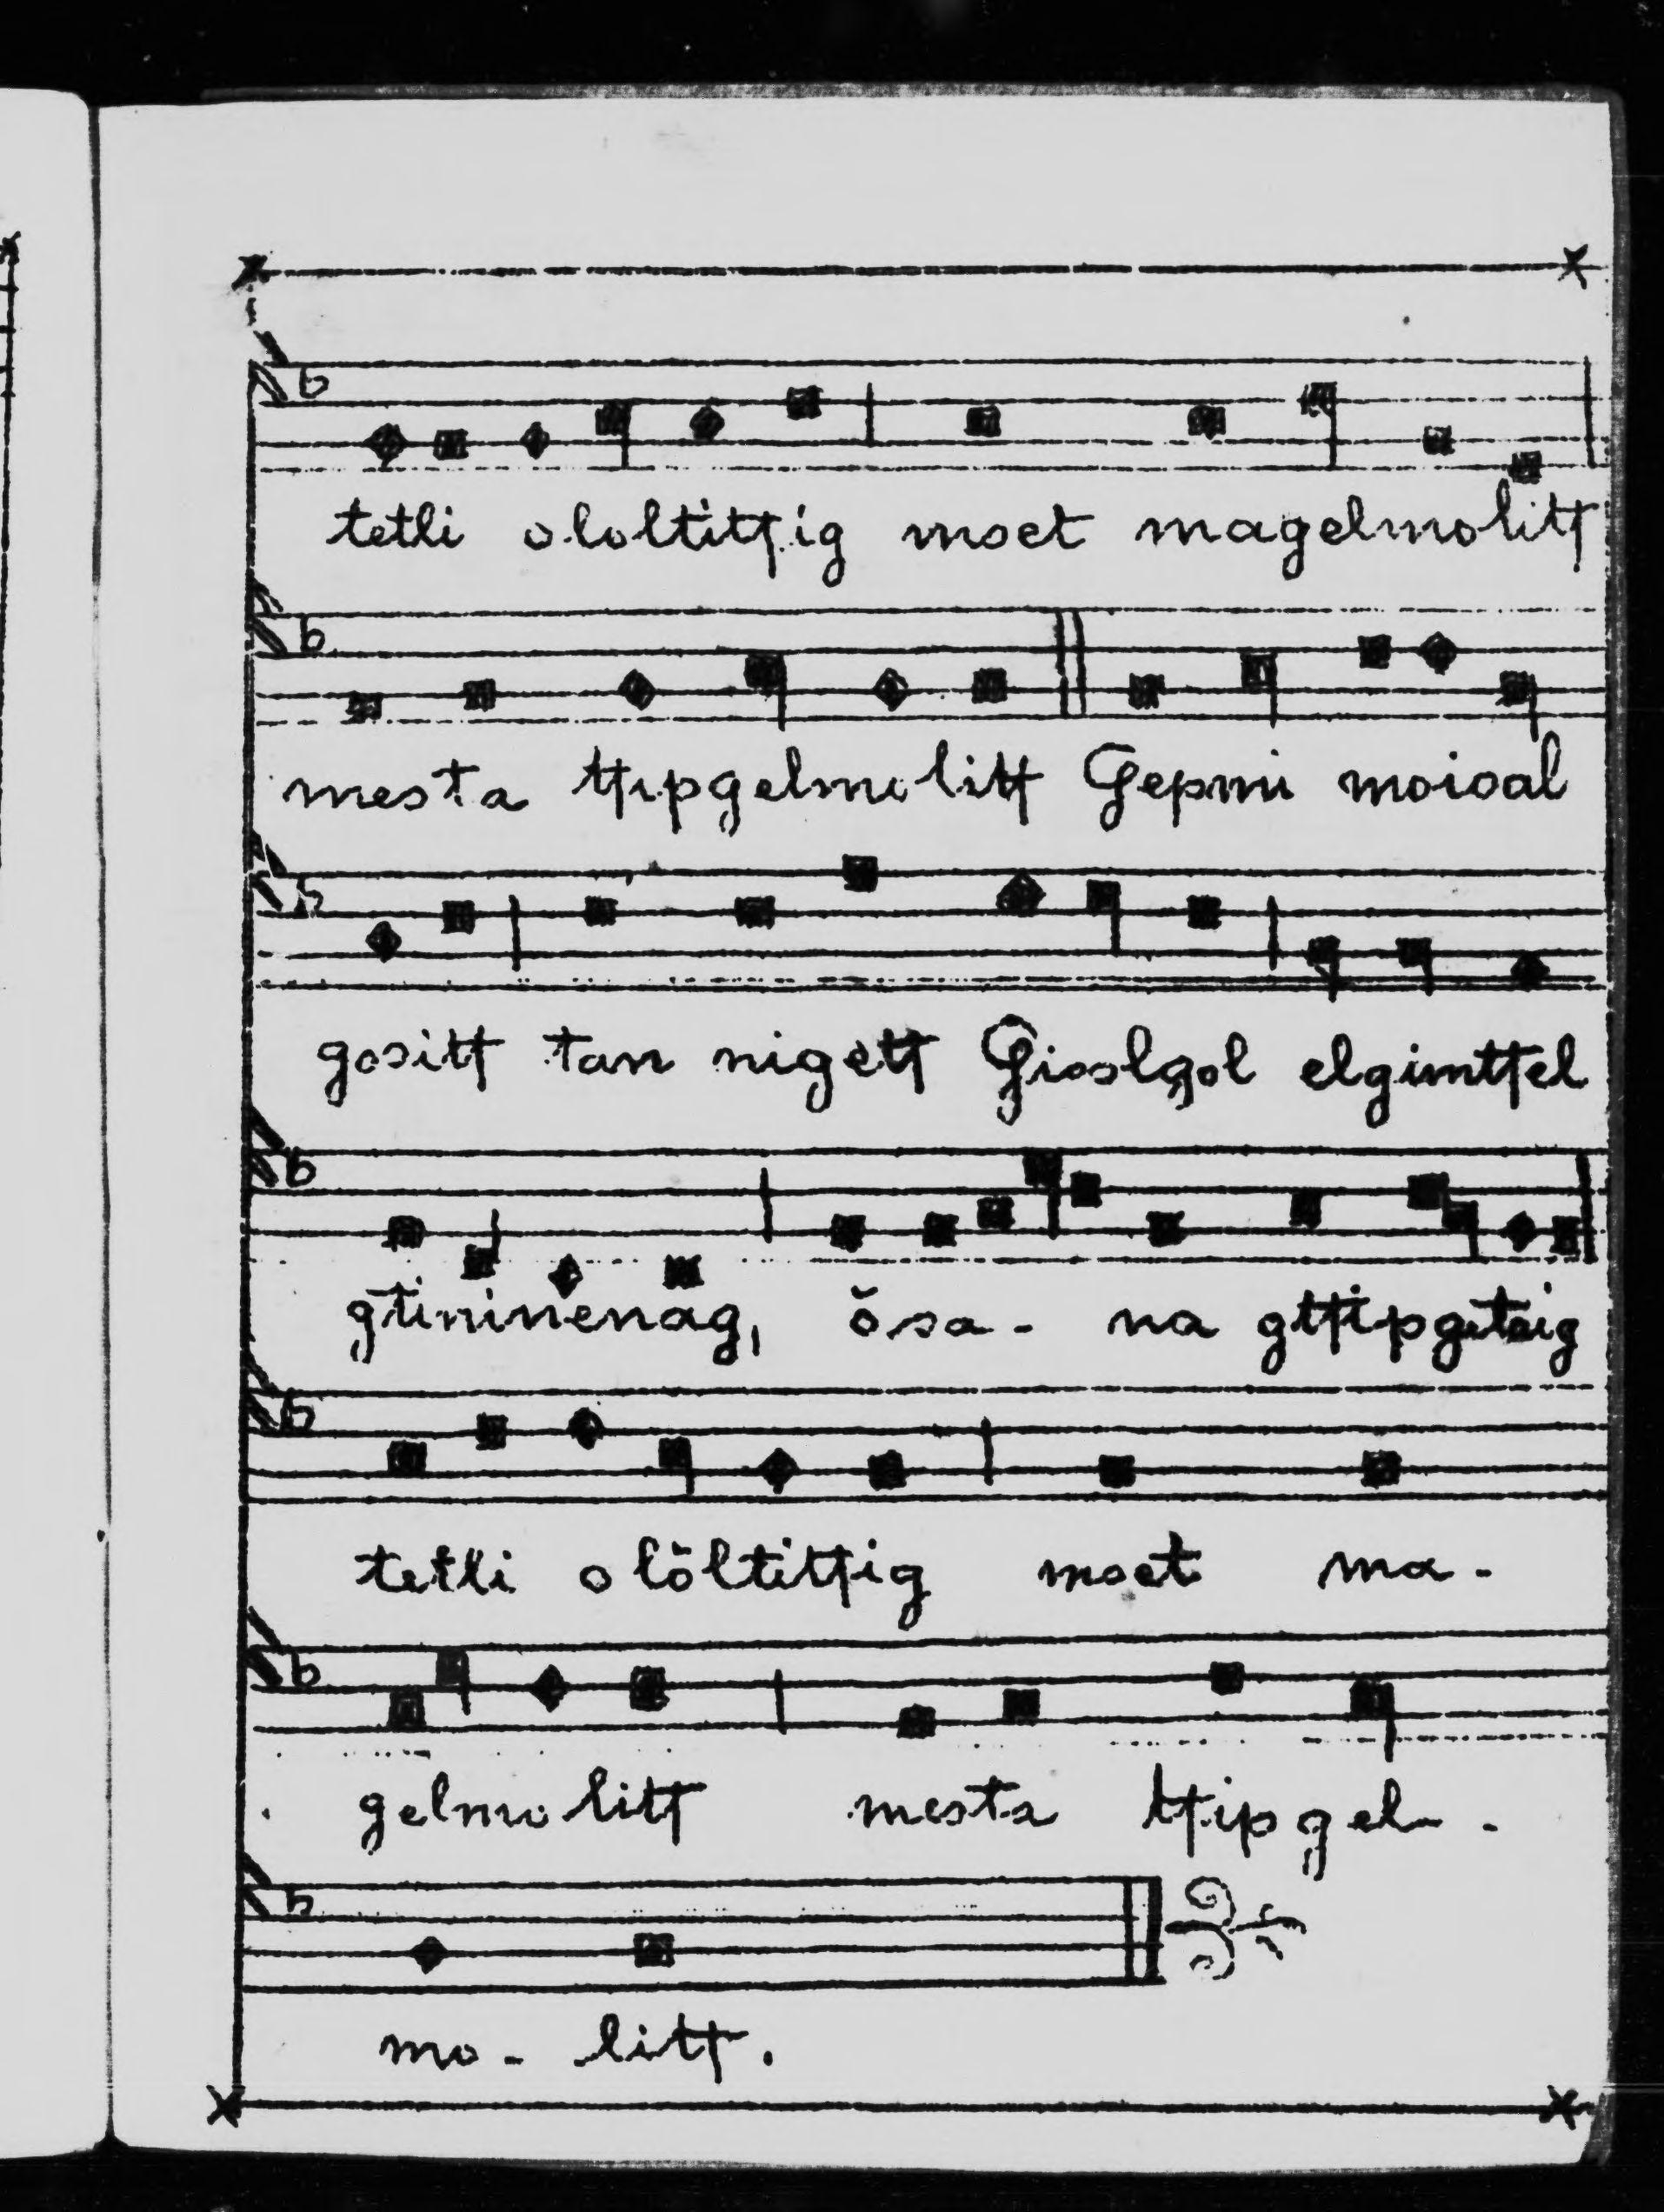 tetli ololtittig moet magelmolitt
mesta ttipgelmolitt Gepmi moisal
gositt tan nigett Gisslgol elgimttel
gtininenag, ŏsa- na gttipgetaig
tetli olŏltittig moet ma-
gelmolitt mesta ttipgel-
mo- litt.